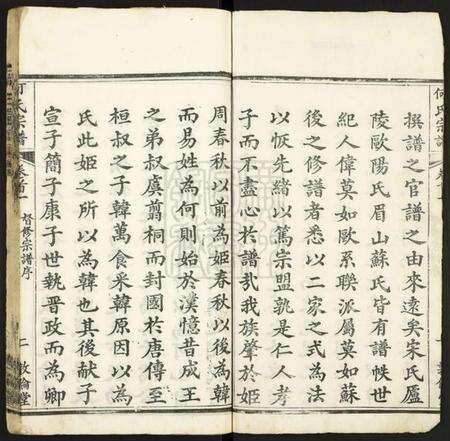 何氏宗譜
撰譜之官譜之由來遠矣宋氏廬
陵歐陽氏眉山蘇氏皆有譜帙世
紀人偉莫如歐系聯派屬莫如蘇
後之修譜者悉以二家之式為法
以恢先緒以篤宗盟孰是仁人孝
子而不盡心於譜哉我族肇於姬
周春秋以前為姬春秋以後為韓
而易姓為何則始於漢憶昔成王
之弟叔虞翦桐而封國於唐傳至
桓叔之子韓萬食采韓原因以為
氏此姬之所以為韓也其後獻子
宣子簡子康子世執晋政而為卿
何氏宗譜
卷首一
督修宗譜序
二
敦倫堂